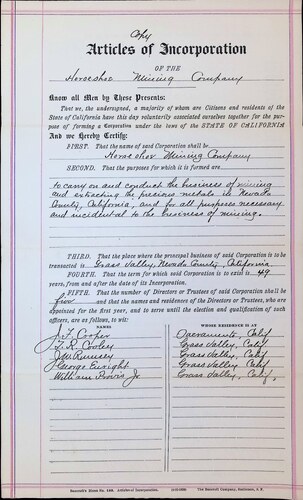 Copy
Articles of Incorporation
OF THE
Horseshoe Mining Company
Know all Men by These Presents:
That we, the undersigned, a majority of whom are Citizens and residents of the
State of California have this day voluntarily associated ourselves together for the pur-
pose of forming a Corporation under the laws of the STATE OF CALIFORNIA
And we Hereby Certify:
FIRST. That the name of said Corporation is
Horseshoe Mining Company
SECOND. That the purposes for which it is formed are
to carry on and conduct the business of mining
and extracting the precious metals in Nevada
County, California, and for all purposes necessary
and incidental to the business of mining.
THIRD. That the place where the principal business of said Corporation is to be
transacted is Grass Valley, Nevada County, California
FOURTH. That the term for which said Corporation is to exist is 49
years, from and after the date of its Incorporation.
FIFTH. That the number of Directors or Trustees of said Corporation shall be
five and that the names and residences of the Directors or Trustees, who are
appointed for the first year, and to serve until the election and qualification of such
officers, are as follows, to wit:
NAMES WHOSE RESIDENCE IS AT
J. F. Cooper Sacramento, Calif
T. R. Cooley Grass Valley, Calif
J. M. Rumsey Grass Valley, Calif
George Enright Grass Valley, Calif
William Provis Jr Grass Valley, Calif.
Articles of Incorporation.
The Bancroft Company,